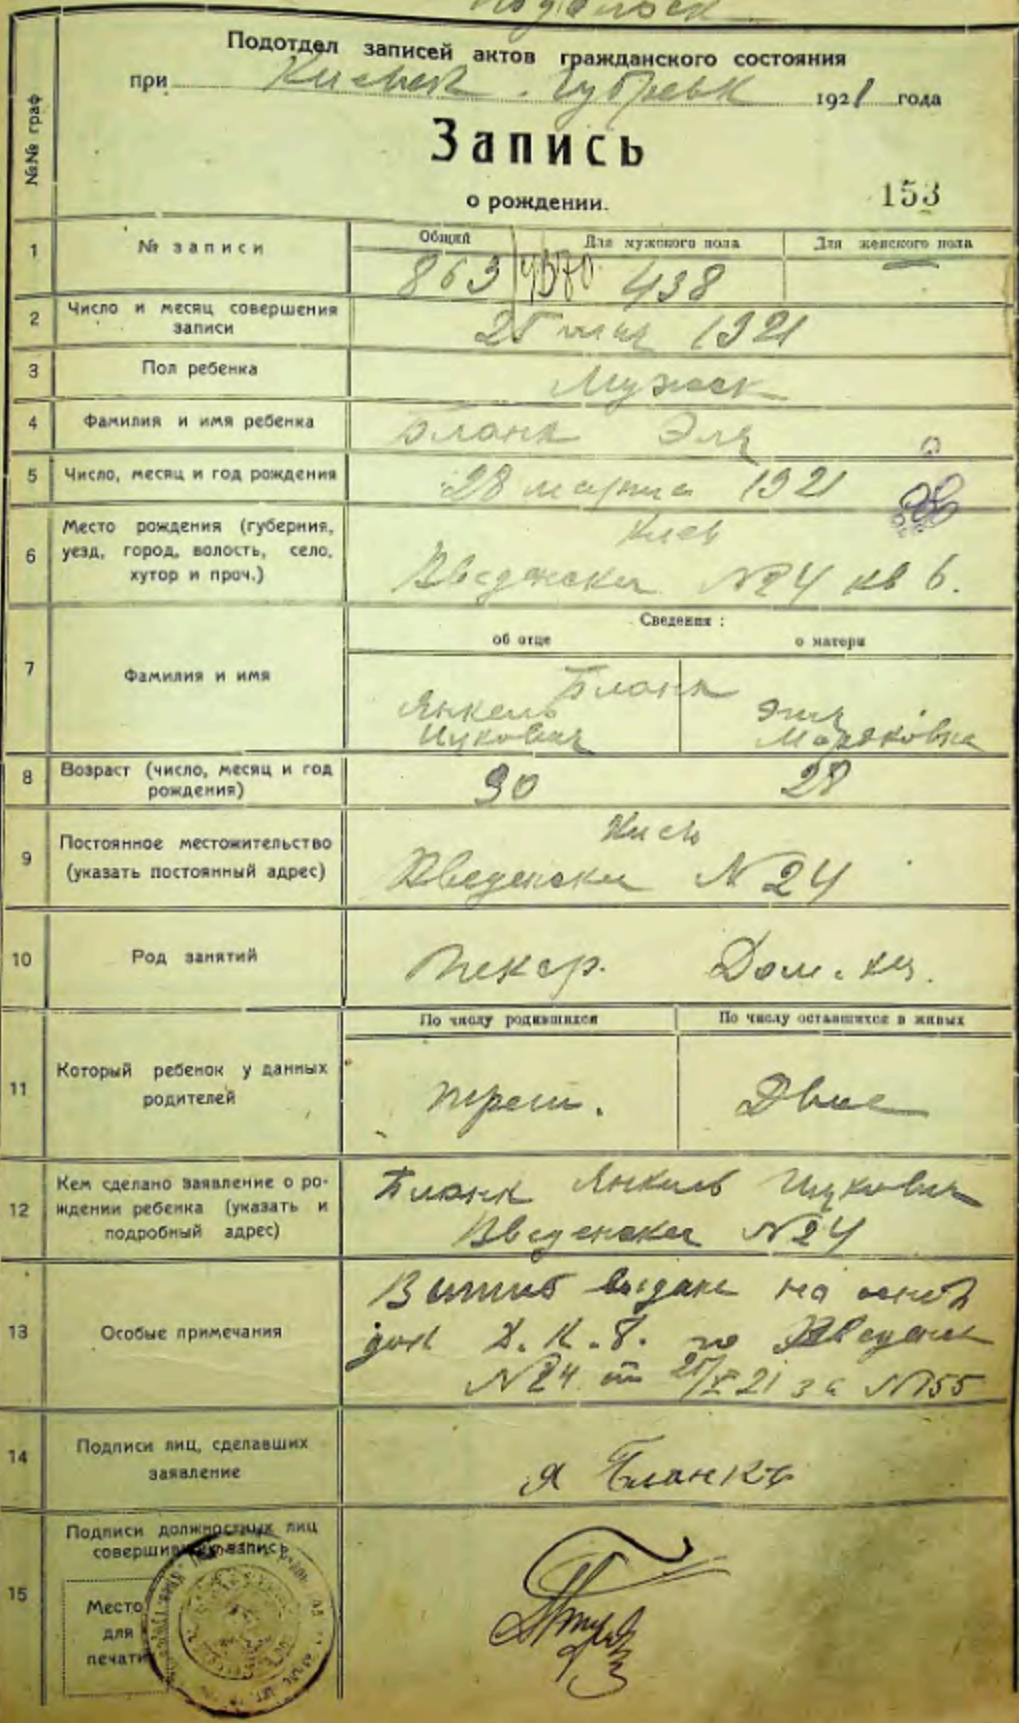 Подольск
Подотдел записей актов гражданского состояния
при Киевск. Губревк 1921 года
Запись
о рождении.
153
№№ граф
1 № записи
Общий Для мужского пола Для женского пола
863 438
2 Число и месяц совершения записи
25 мая 1921
3 Пол ребенка
Мужеск
4 Фамилия и имя ребенка
Бланк Эля
5 Число, месяц и год рождения
28 марта 1921
6 Место рождения (губерния,
уезд, город, волость, село,
хутор и проч.)
Киев
Введенская №24 кв 6.
Сведения:
об отце о матери
7 Фамилия и имя
Бланк
Янкель
Ицкович
Мордковна
8 Возраст (число, месяц и год
рождения)
30 28
9 Постоянное местожительство
(указать постоянный адрес)
Киев
Введенская № 24
10 Род занятий
Пекар. Дом. хоз.
По числу родившихся По числу оставшихся в живых
11 Который ребенок у данных
родителей
трет. Двое
12 Кем сделано заявление о ро-
ждении ребенка (указать и
подробный адрес)
Бланк Янкель Ицкович
Введенская №24
13 Особые примечания
выдана на основ
док Д. К. по Введенск
№24 от 21 за №155
14 Подписи лиц, сделавших
заявление
Я Бланкъ
15 Подписи должностных лиц
совершивших запись
Место
для
печати